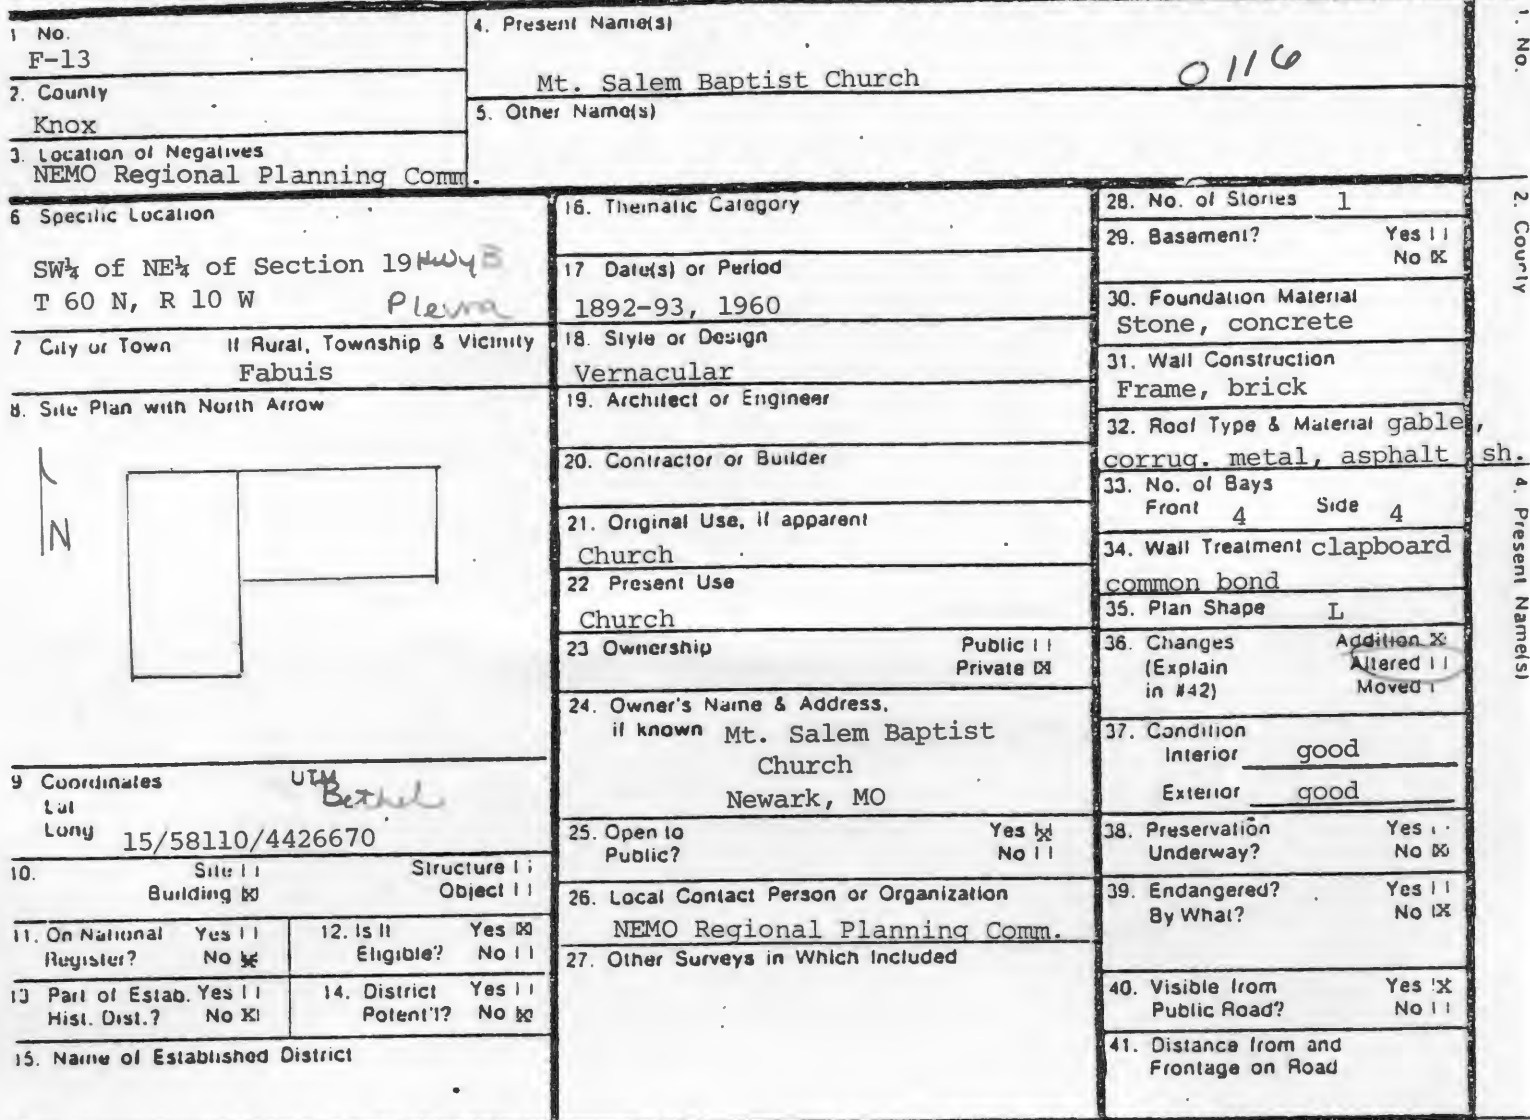 1 No.
F-13
2. County
Knox
3. Location of Negatives
NEMO Regional Planning Comm.
4. Present Name(s)
Mt. Salem Baptist Church
0116
5. Other Name(s)
6 Specific Location
SW¼ of NE¼ of Section 19 Hwy E
T 60 N, R 10 W
Plevna
7 City or Town If Rural, Township & Vicinity
Fabuis
8. Site Plan with North Arrow
N
9 Coordinates UTM
Bethel
Lat
Long 15/58110/4426670
10. Site [ ] Structure [ ]
Building [X] Object [ ]
11. On National Register? Yes [ ] No [X]
12. Is It Eligible? Yes [X] No [ ]
13 Part of Estab. Hist. Dist.? Yes [ ] No [X]
14. District Potent'l? Yes [ ] No [X]
15. Name of Established District
16. Thematic Category
17 Date(s) or Period
1892-93, 1960
18. Style or Design
Vernacular
19. Architect or Engineer
20. Contractor or Builder
21. Original Use, if apparent
Church
22 Present Use
Church
23 Ownership Public [ ]
Private [X]
24. Owner's Name & Address,
if known Mt. Salem Baptist
Church
Newark, MO
25. Open to Yes [X]
Public? No [ ]
26. Local Contact Person or Organization
NEMO Regional Planning Comm.
27. Other Surveys in Which Included
28. No. of Stories 1
29. Basement? Yes [ ]
No [X]
30. Foundation Material
Stone, concrete
31. Wall Construction
Frame, brick
32. Roof Type & Material gable,
corrug. metal, asphalt sh.
33. No. of Bays
Front 4 Side 4
34. Wall Treatment clapboard
common bond
35. Plan Shape L
36. Changes Addition [X]
(Explain Altered [ ]
in #42) Moved [ ]
37. Condition
Interior good
Exterior good
38. Preservation Yes [ ]
Underway? No [X]
39. Endangered? Yes [ ]
By What? No [X]
40. Visible from Yes [X]
Public Road? No [ ]
41. Distance from and
Frontage on Road
1. No.
2. County
4. Present Name(s)